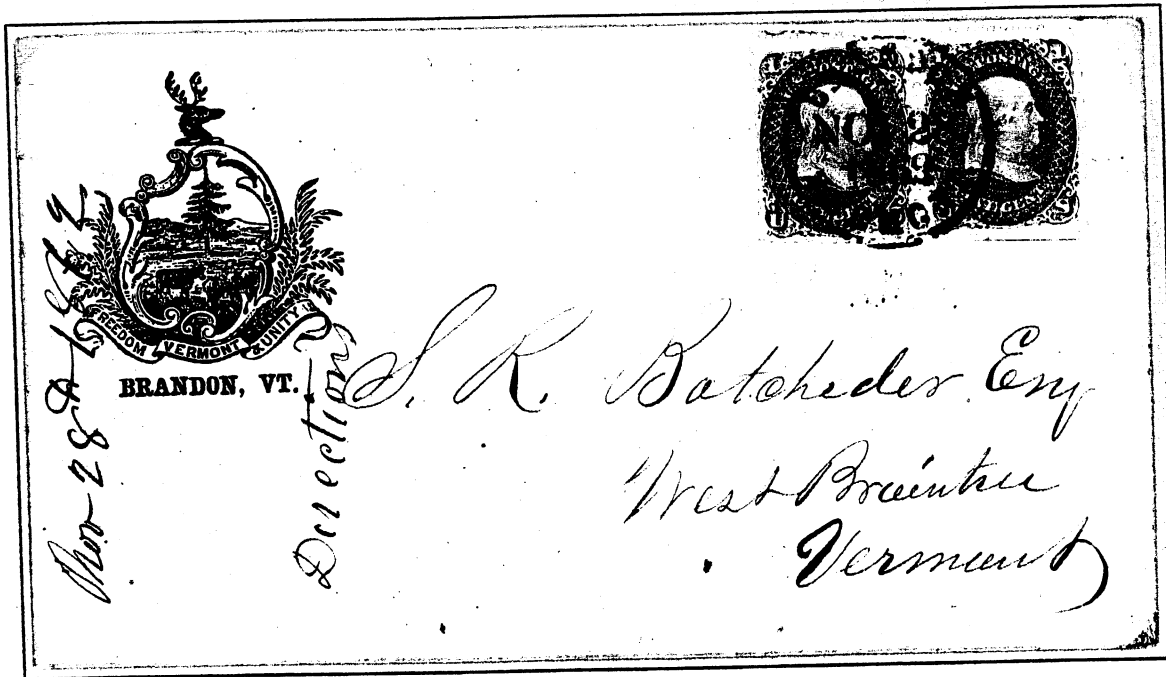 FREEDOM VERMONT & UNITY
BRANDON, VT.
Nov 28th 1862
Direction
S. R. Batcheder Esq
West Braintree
Vermont
NO 2